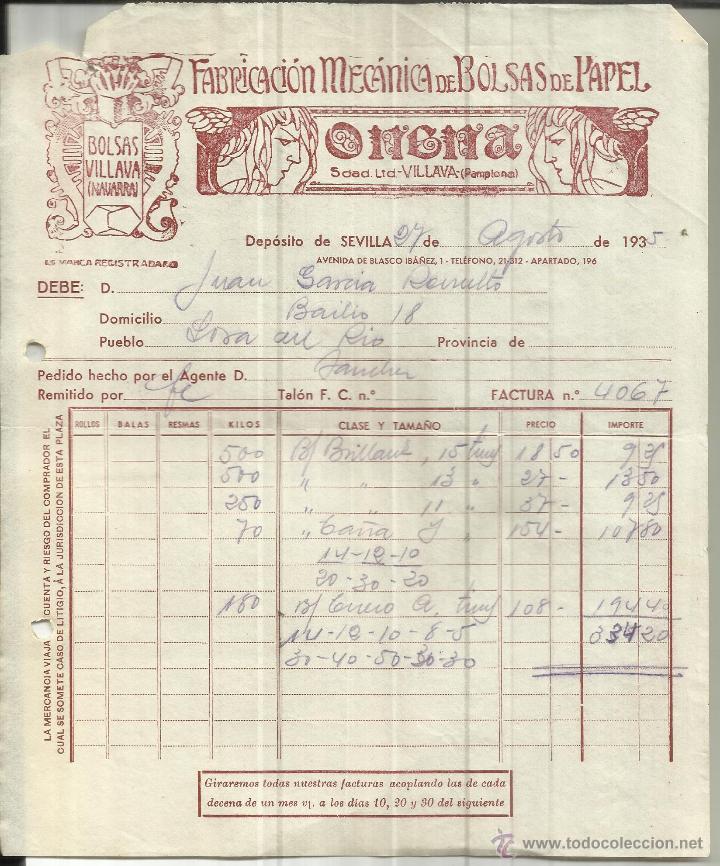 FABRICACIÓN MECÁNICA DE BOLSAS DE PAPEL
BOLSAS
VILLAVA
(NAVARRA)
ONENA
Sdad. Ltd.-VILLAVA-(Pamplona)
ES MARCA REGISTRADA
Depósito de SEVILLA 27 de Agosto de 1935
AVENIDA DE BLASCO IBÁÑEZ, 1 - TELÉFONO, 21-312 - APARTADO, 196
DEBE: D. Juan Garcia
Domicilio Bailio 18
Pueblo Lora del Rio Provincia de
Pedido hecho por el Agente D. Sanchez
Remitido por fc Talón F. C. n.º FACTURA n.º 4067
ROLLOS BALAS RESMAS KILOS CLASE Y TAMAÑO PRECIO IMPORTE
500 B/ Brillant, 15 18 50 9 25
500 " " 13 " 27 - 13 50
250 " " 11 " 37 - 9 25
70 " Caña 154 - 107 80
14-12-10
20-30-20
180 B/ Cuero A. 108 - 194 40
14-12-10-8-5
30-40-50-30-30
334 20
LA MERCANCIA VIAJA CUENTA Y RIESGO DEL COMPRADOR EL
CUAL SE SOMETE CASO DE LITIGIO, Á LA JURISDICCION DE ESTA PLAZA
Giraremos todas nuestras facturas acoplando las de cada
decena de un mes v/. a los días 10, 20 y 30 del siguiente
www.todocoleccion.net